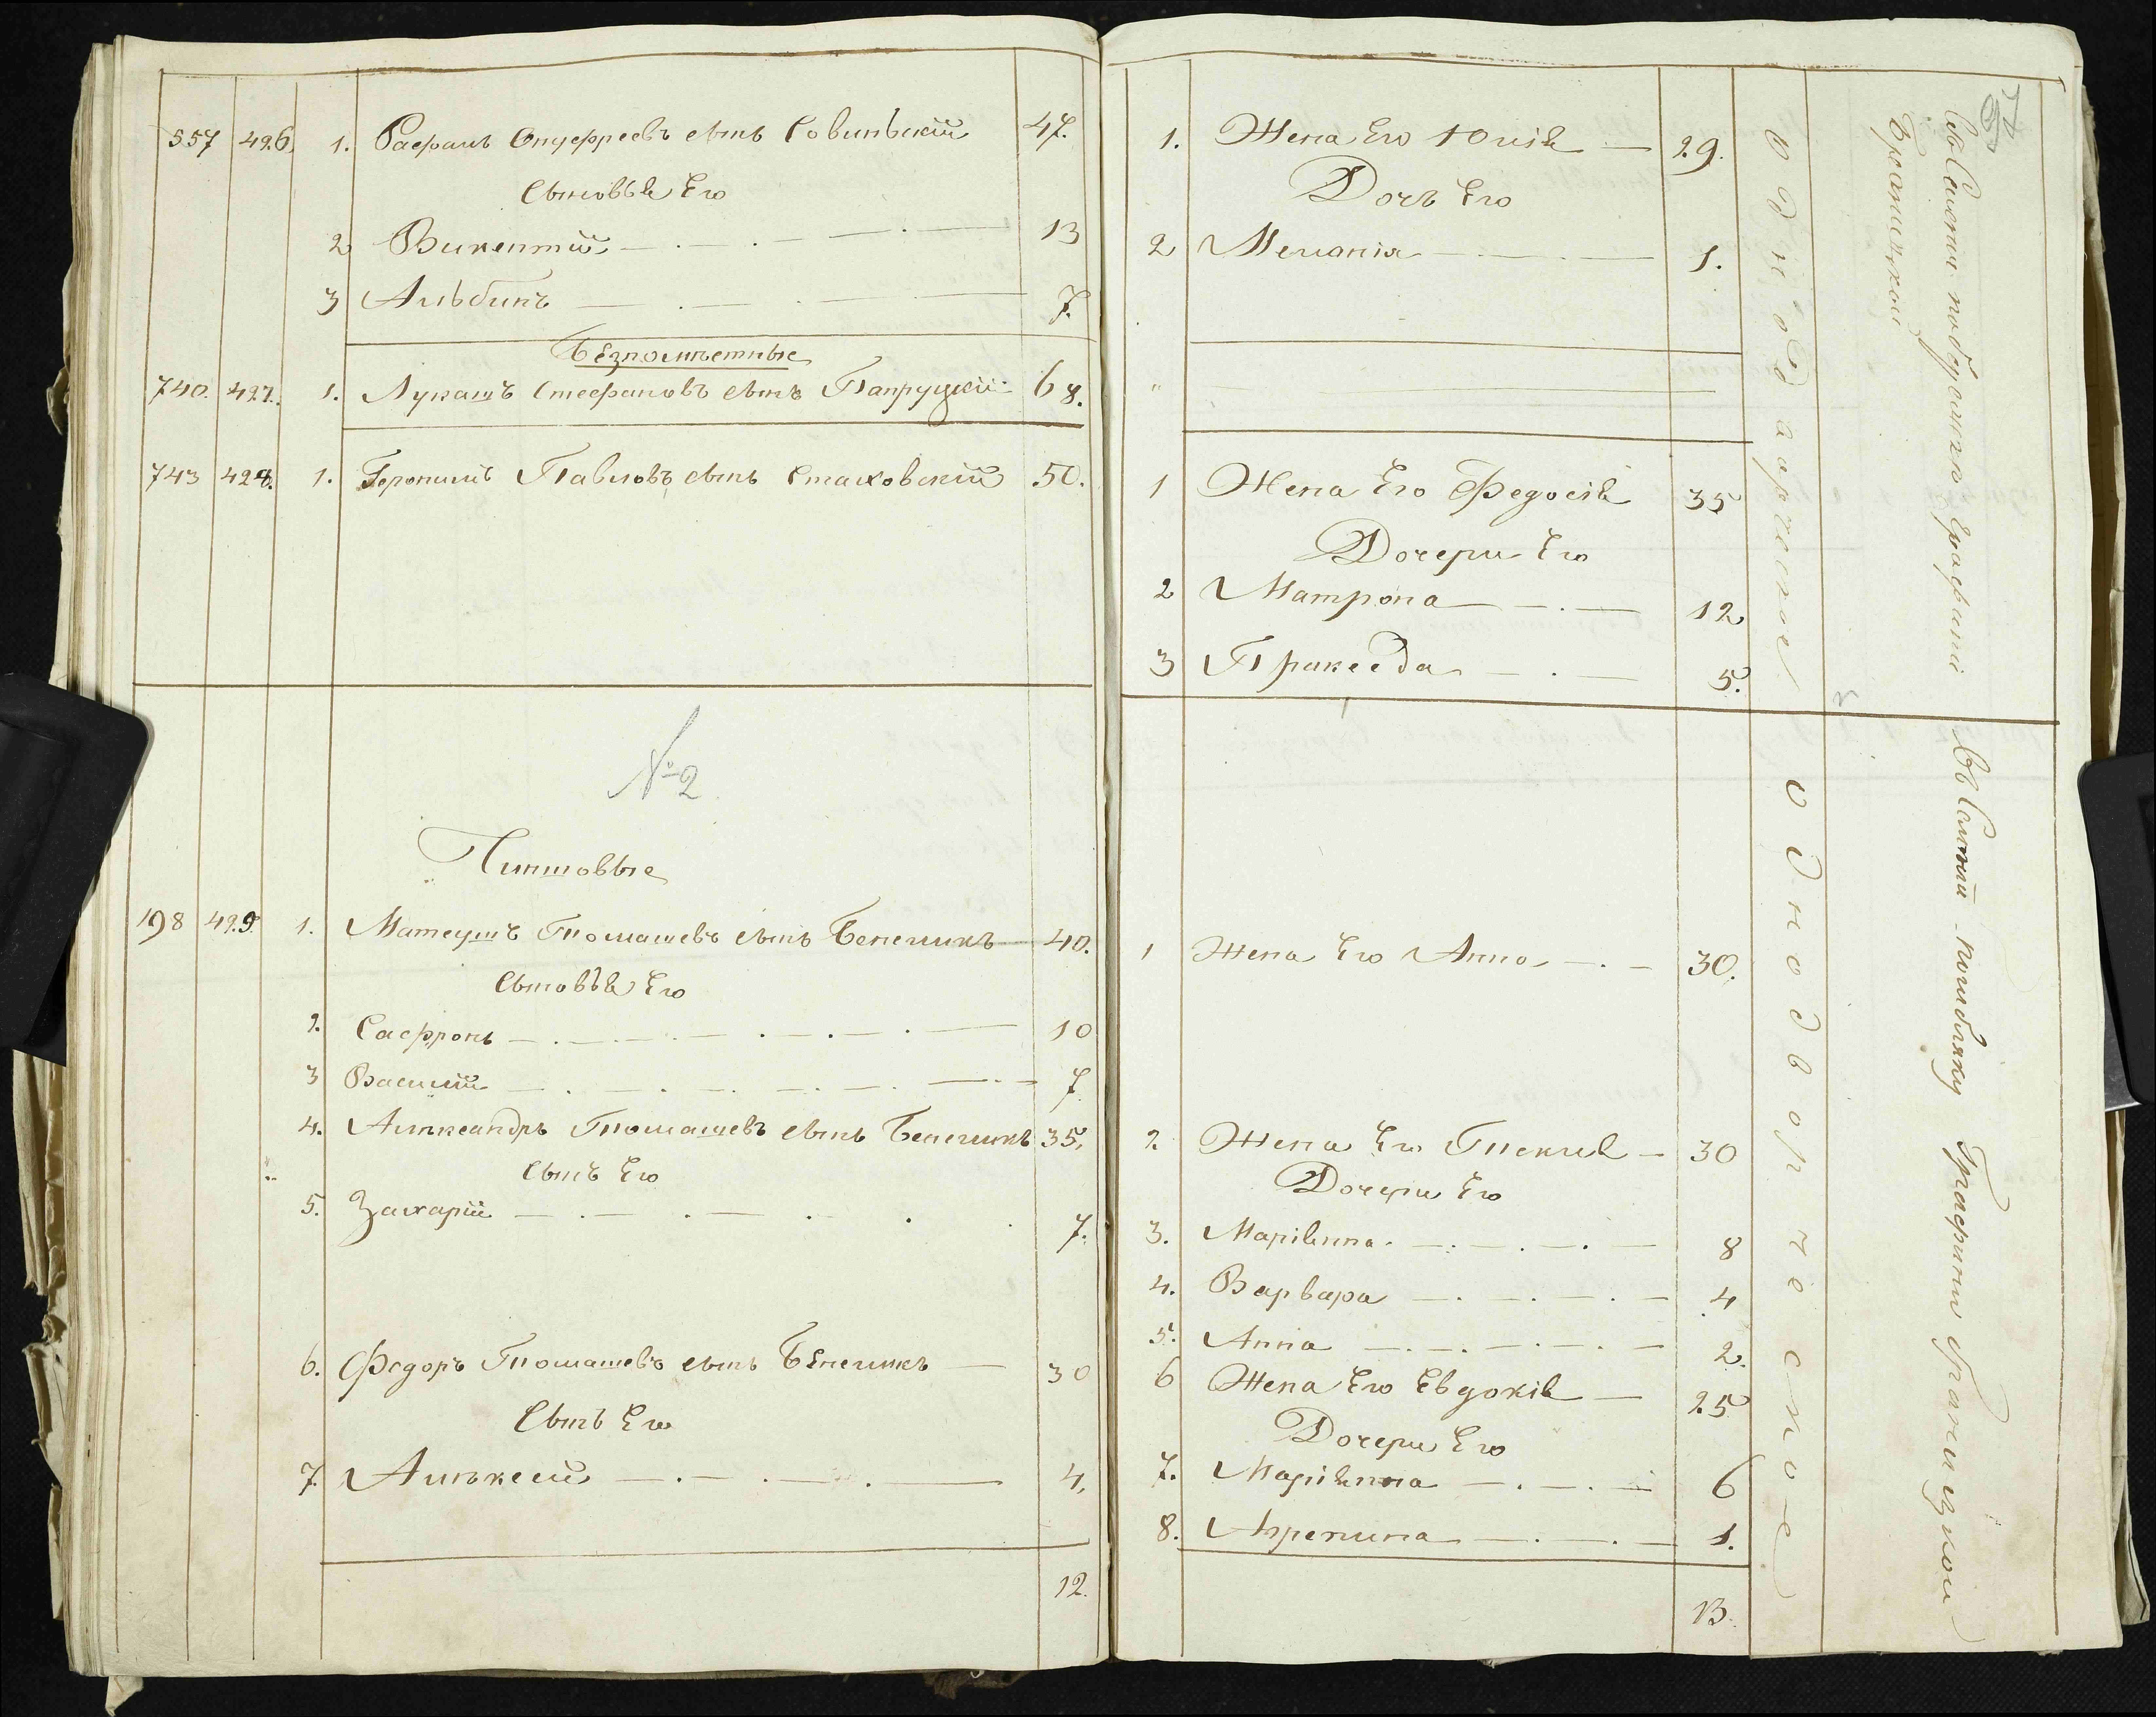 557 496. 1. Рафалъ Онуфреевъ сынъ Совиньскій 47.
Сыновья Его
2 Викентій 13
3 Альбинъ 7.
Безпоместные
740. 497. 1. Лукашъ Стефановъ сынъ Папруцкій 68.
743 498. 1. Геронимъ Павловъ сынъ Стаховскій 50.
№ 2
Чиншовые
198 499. 1. Матеушъ Томашевъ сынъ 40.
Сыновья Его
2. Сафронъ 10
3 Василій 7.
4. Александръ Томашевъ сынъ 35.
Сынъ Его
5. Захарій 7.
6. Федоръ Томашевъ сынъ 30
Сынъ Его
7. Алексей 4.
12.
1. Жена Его Юлія 29.
Дочь Его
2 Меланія 1.
1 Жена Его Федосія 35
Дочери Его
2 Матрона 12
3 Пракседа 5.
1 Жена Его Анна 30.
2. Жена Его Текля 30
Дочери Его
3. Маріянна 8
4. Варвара 4
5. Анна 2.
6 Жена Его Евдокія 25
Дочери Его
7. Маріянна 6
8. Агрепина 1.
13.
однодворческое
Въ Селеніи Графини
Браницкой
Въ Селеніи Графини Браницкой